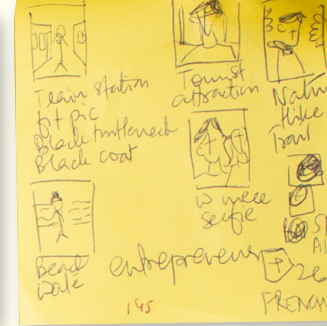 Train station
fit pic
Black turtleneck
Black coat
Tourist
attraction
Natu
Hike
Trail
w niece
selfie
Beach
Walk
entrepreneur
145
FRENCH